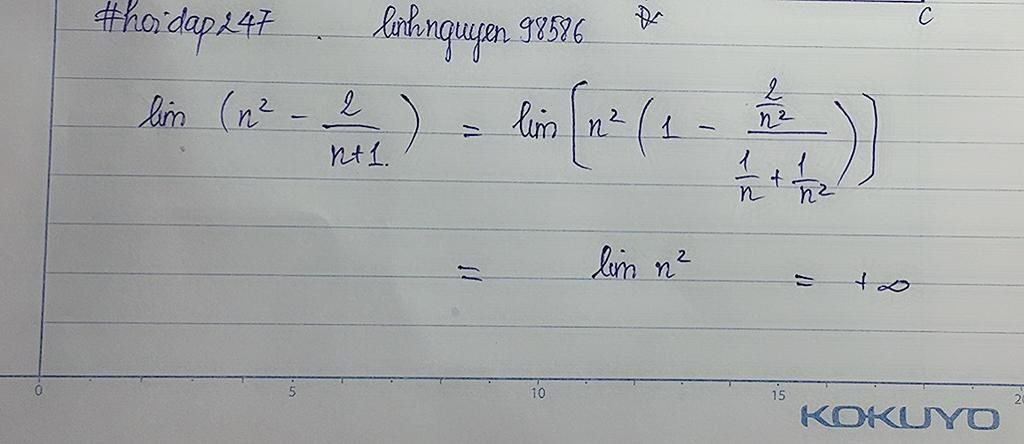 #hoidap247 . linhnguyen 98586 C
lim (n² - 2/(n+1)) = lim [n² (1 - (2/n²)/(1/n + 1/n²))]
= lim n² = +∞
0 5 10 15 20
KOKUYO